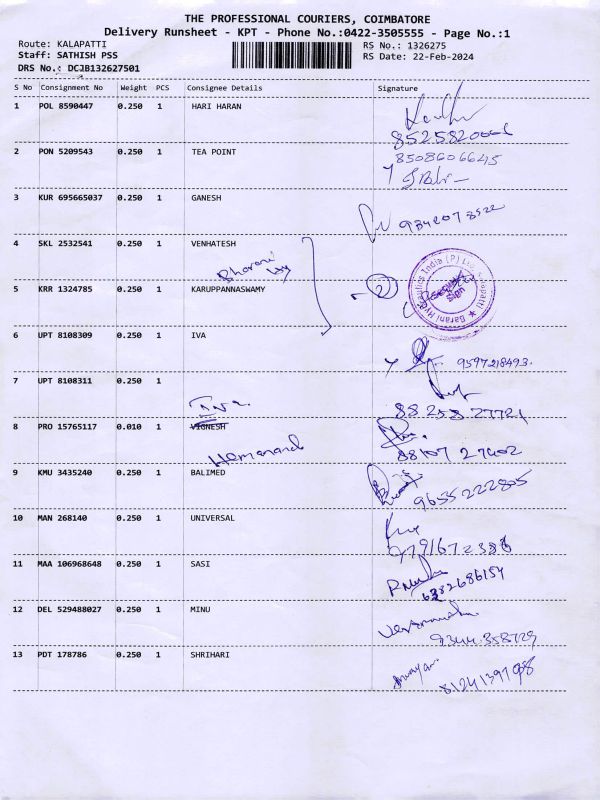 THE PROFESSIONAL COURIERS, COIMBATORE
Delivery Runsheet - KPT - Phone No.:0422-3505555 - Page No.:1
Route: KALAPATTI
RS No.: 1326275
Staff: SATHISH PSS
RS Date: 22-Feb-2024
DRS No.: DCJB132627501
S No Consignment No Weight PCS Consignee Details Signature
1 POL 8590447 0.250 1 HARI HARAN
2 PON 5209543 0.250 1 TEA POINT
8508606645
3 KUR 695665037 0.250 1 GANESH
9842078522
4 SKL 2532541 0.250 1 VENHATESH
5 KRR 1324785 0.250 1 KARUPPANNASWAMY
2
6 UPT 8108309 0.250 1 IVA
9597218493.
7 UPT 8108311 0.250 1
88258 27721
8 PRO 15765117 0.010 1 VIGNESH
Hemanand
88107 27402
9 KMU 3435240 0.250 1 BALIMED
9655222805
10 MAN 268140 0.250 1 UNIVERSAL
9791672388
11 MAA 106968648 0.250 1 SASI
6382686154
12 DEL 529488027 0.250 1 MINU
9344358729
13 PDT 178786 0.250 1 SHRIHARI